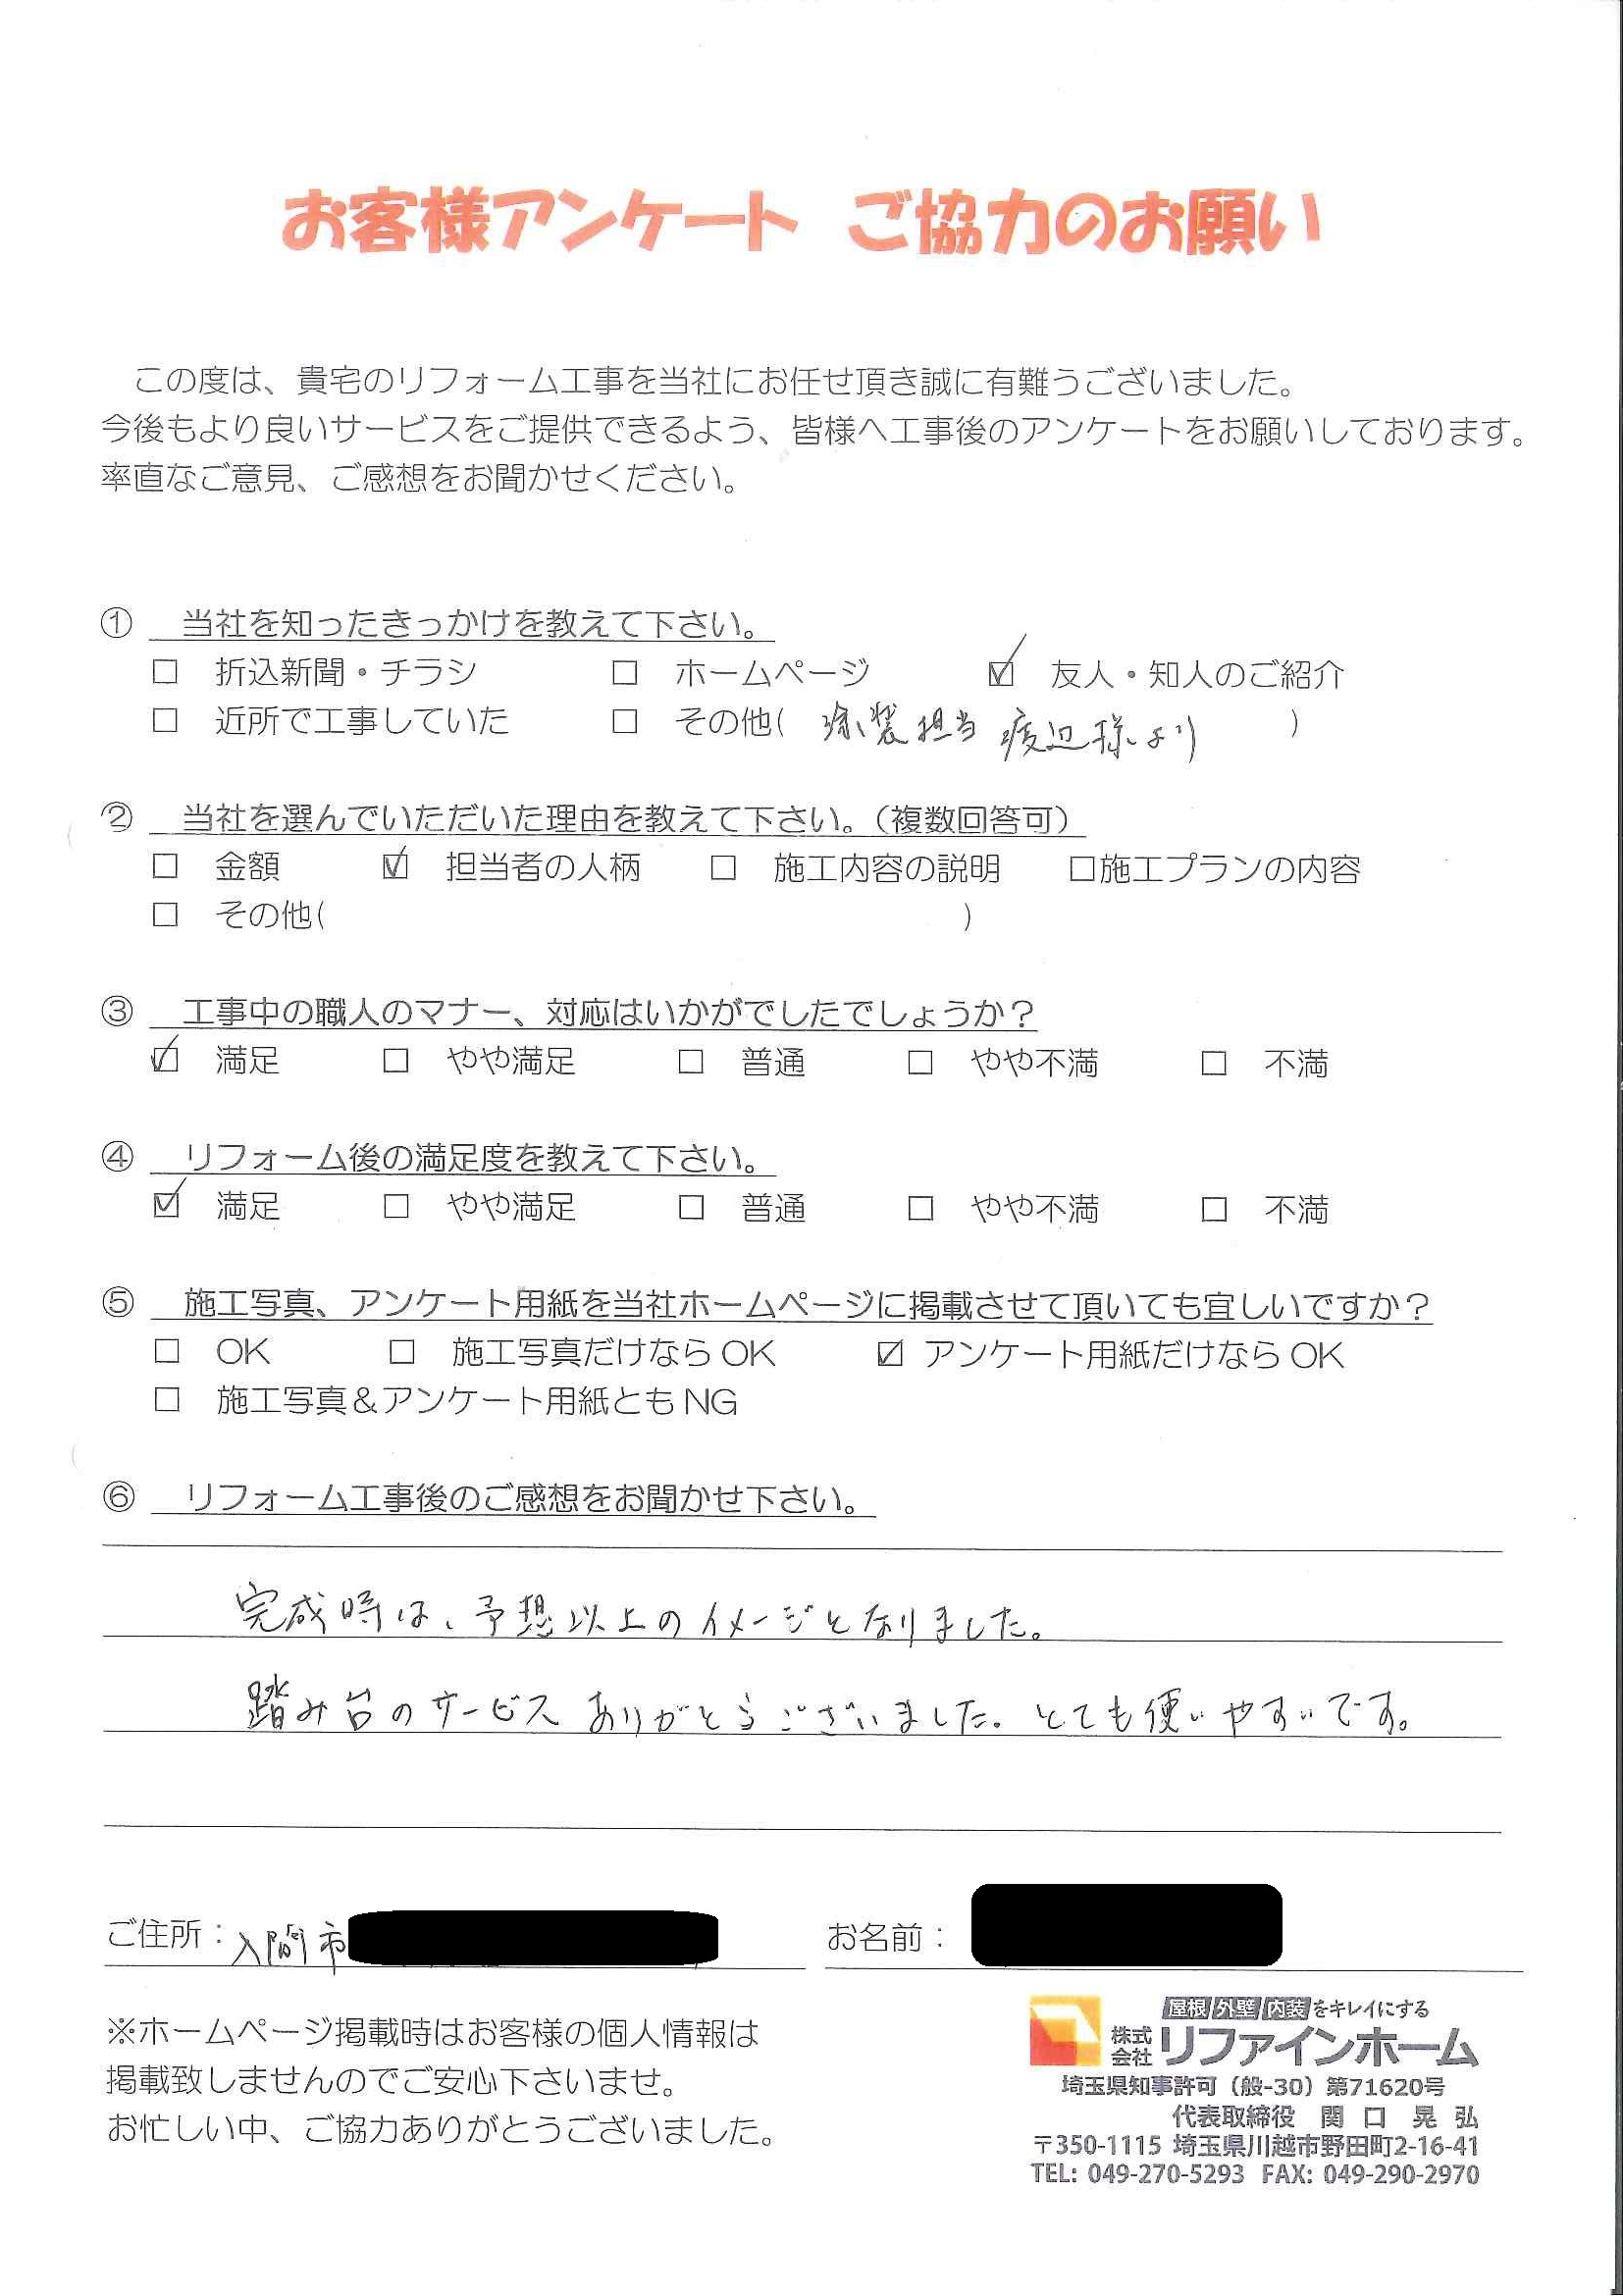 お客様アンケート ご協力のお願い
この度は、貴宅のリフォーム工事を当社にお任せ頂き誠に有難うございました。
今後もより良いサービスをご提供できるよう、皆様へ工事後のアンケートをお願いしております。
率直なご意見、ご感想をお聞かせください。
① 当社を知ったきっかけを教えて下さい。
□ 折込新聞・チラシ □ ホームページ ☑ 友人・知人のご紹介
□ 近所で工事していた □ その他( 塗装担当 渡辺様より )
② 当社を選んでいただいた理由を教えて下さい。(複数回答可)
□ 金額 ☑ 担当者の人柄 □ 施工内容の説明 □施工プランの内容
□ その他( )
③ 工事中の職人のマナー、対応はいかがでしたでしょうか？
☑ 満足 □ やや満足 □ 普通 □ やや不満 □ 不満
④ リフォーム後の満足度を教えて下さい。
☑ 満足 □ やや満足 □ 普通 □ やや不満 □ 不満
⑤ 施工写真、アンケート用紙を当社ホームページに掲載させて頂いても宜しいですか？
□ OK □ 施工写真だけなら OK ☑ アンケート用紙だけなら OK
□ 施工写真＆アンケート用紙とも NG
⑥ リフォーム工事後のご感想をお聞かせ下さい。
完成時は、予想以上のイメージとなりました。
踏み台のサービスありがとうございました。とても使いやすいです。
ご住所：入間市 お名前：
※ホームページ掲載時はお客様の個人情報は
掲載致しませんのでご安心下さいませ。
お忙しい中、ご協力ありがとうございました。
屋根 外壁 内装 をキレイにする
株式会社 リファインホーム
埼玉県知事許可（般-30）第71620号
代表取締役 関口 晃弘
〒350-1115 埼玉県川越市野田町2-16-41
TEL: 049-270-5293 FAX: 049-290-2970